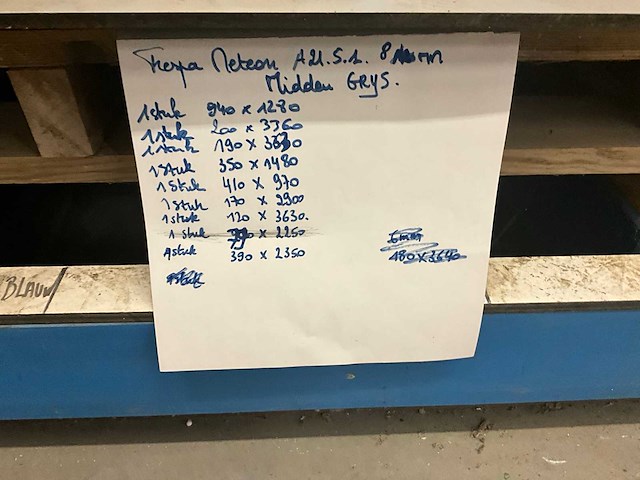 Trespa Meteon A21.5.1. 8 mm
Midden GRYS.
1 stuk 940 x 1280
1 stuk 200 x 3360
1 stuk 190 x
1 stuk 350 x 1480
1 stuk 410 x 970
1 stuk 170 x 2900
1 stuk 120 x 3630.
1 stuk x 2250
1 stuk 390 x 2350
6mm
180 x 3640
BLAUW